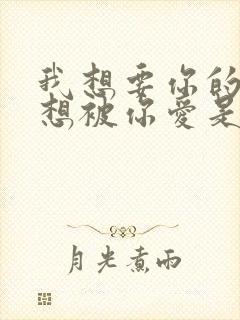 我想要你的
想被你爱是
月光煮雨